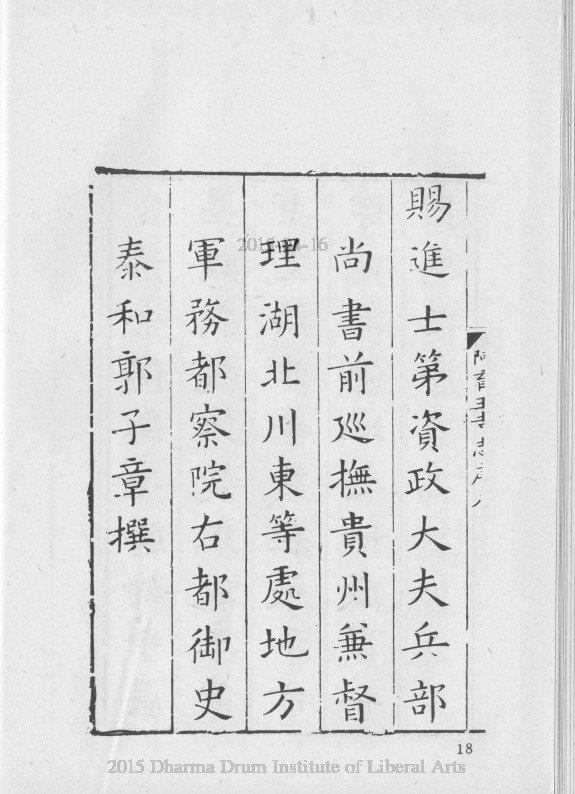 賜進士第資政大夫兵部
尚書前巡撫貴州兼督
理湖北川東等處地方
軍務都察院右都御史
泰和郭子章撰
阿育王寺志序
18
2015 Dharma Drum Institute of Liberal Arts